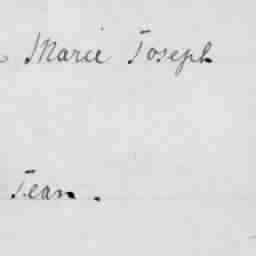 Marie Joseph
Jean.